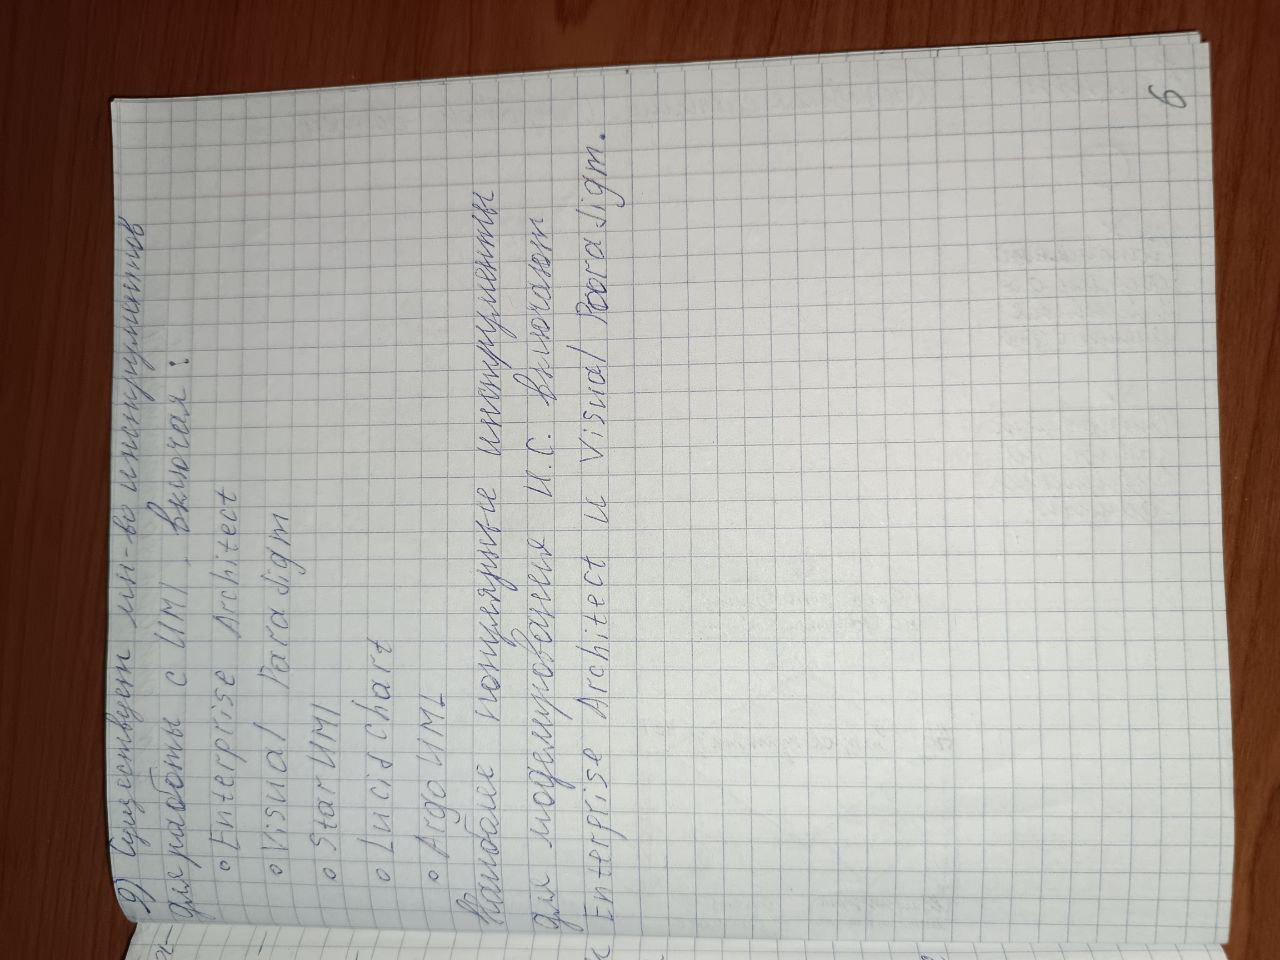 9) Существует мн-во инструментов
для работы с UMl, включая:
o Enterprise Architect
o Visual Paradigm
o StarUMl
o Lucid Chart
o Argo UML
Наиболее популярные инструменты
для моделирования И.С. включают
Enterprise Architect и Visual Paradigm.
6